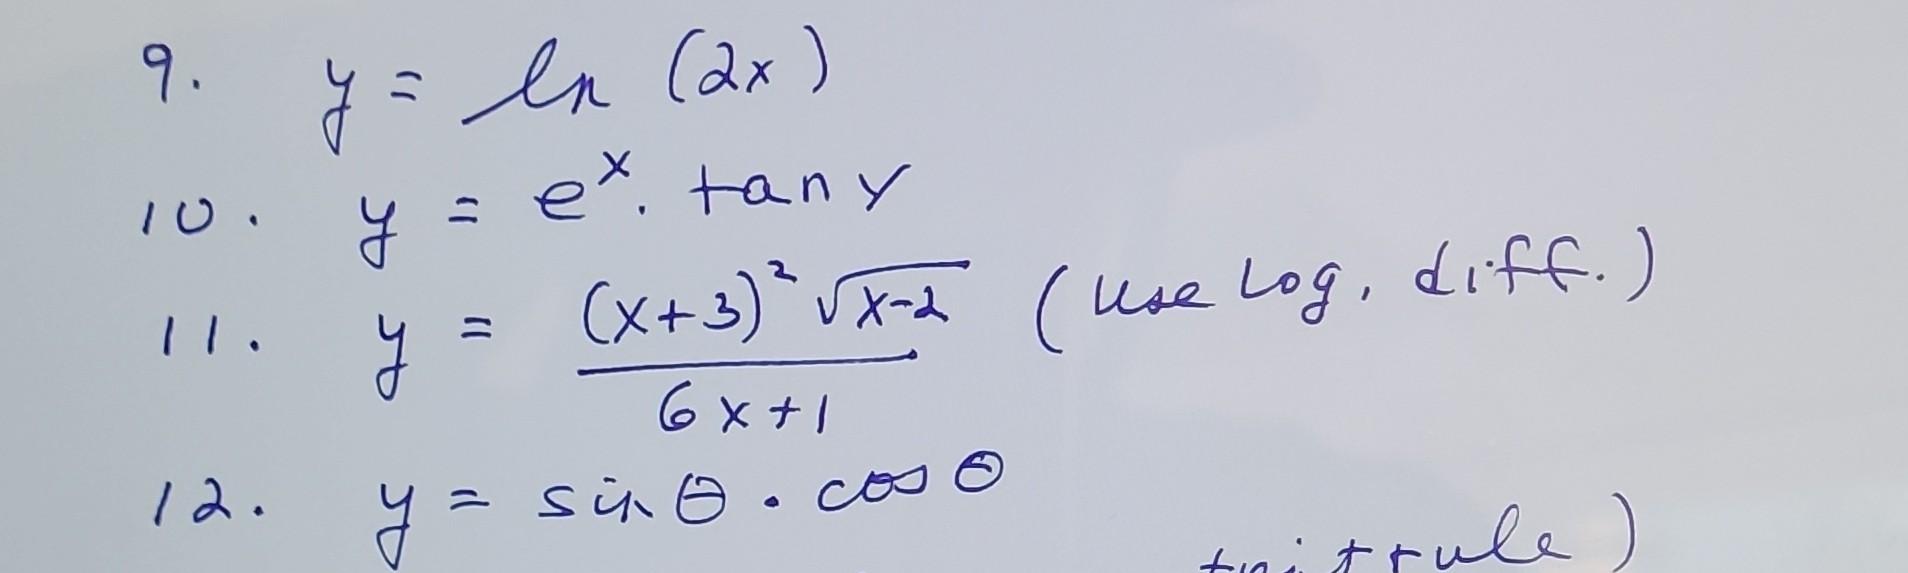 9. y = ln (2x)
10. y = e^x . tan y
11. y = (x+3)^2 √(x-2) / (6x+1) (Use Log, diff.)
12. y = sin θ . cos θ
rule)